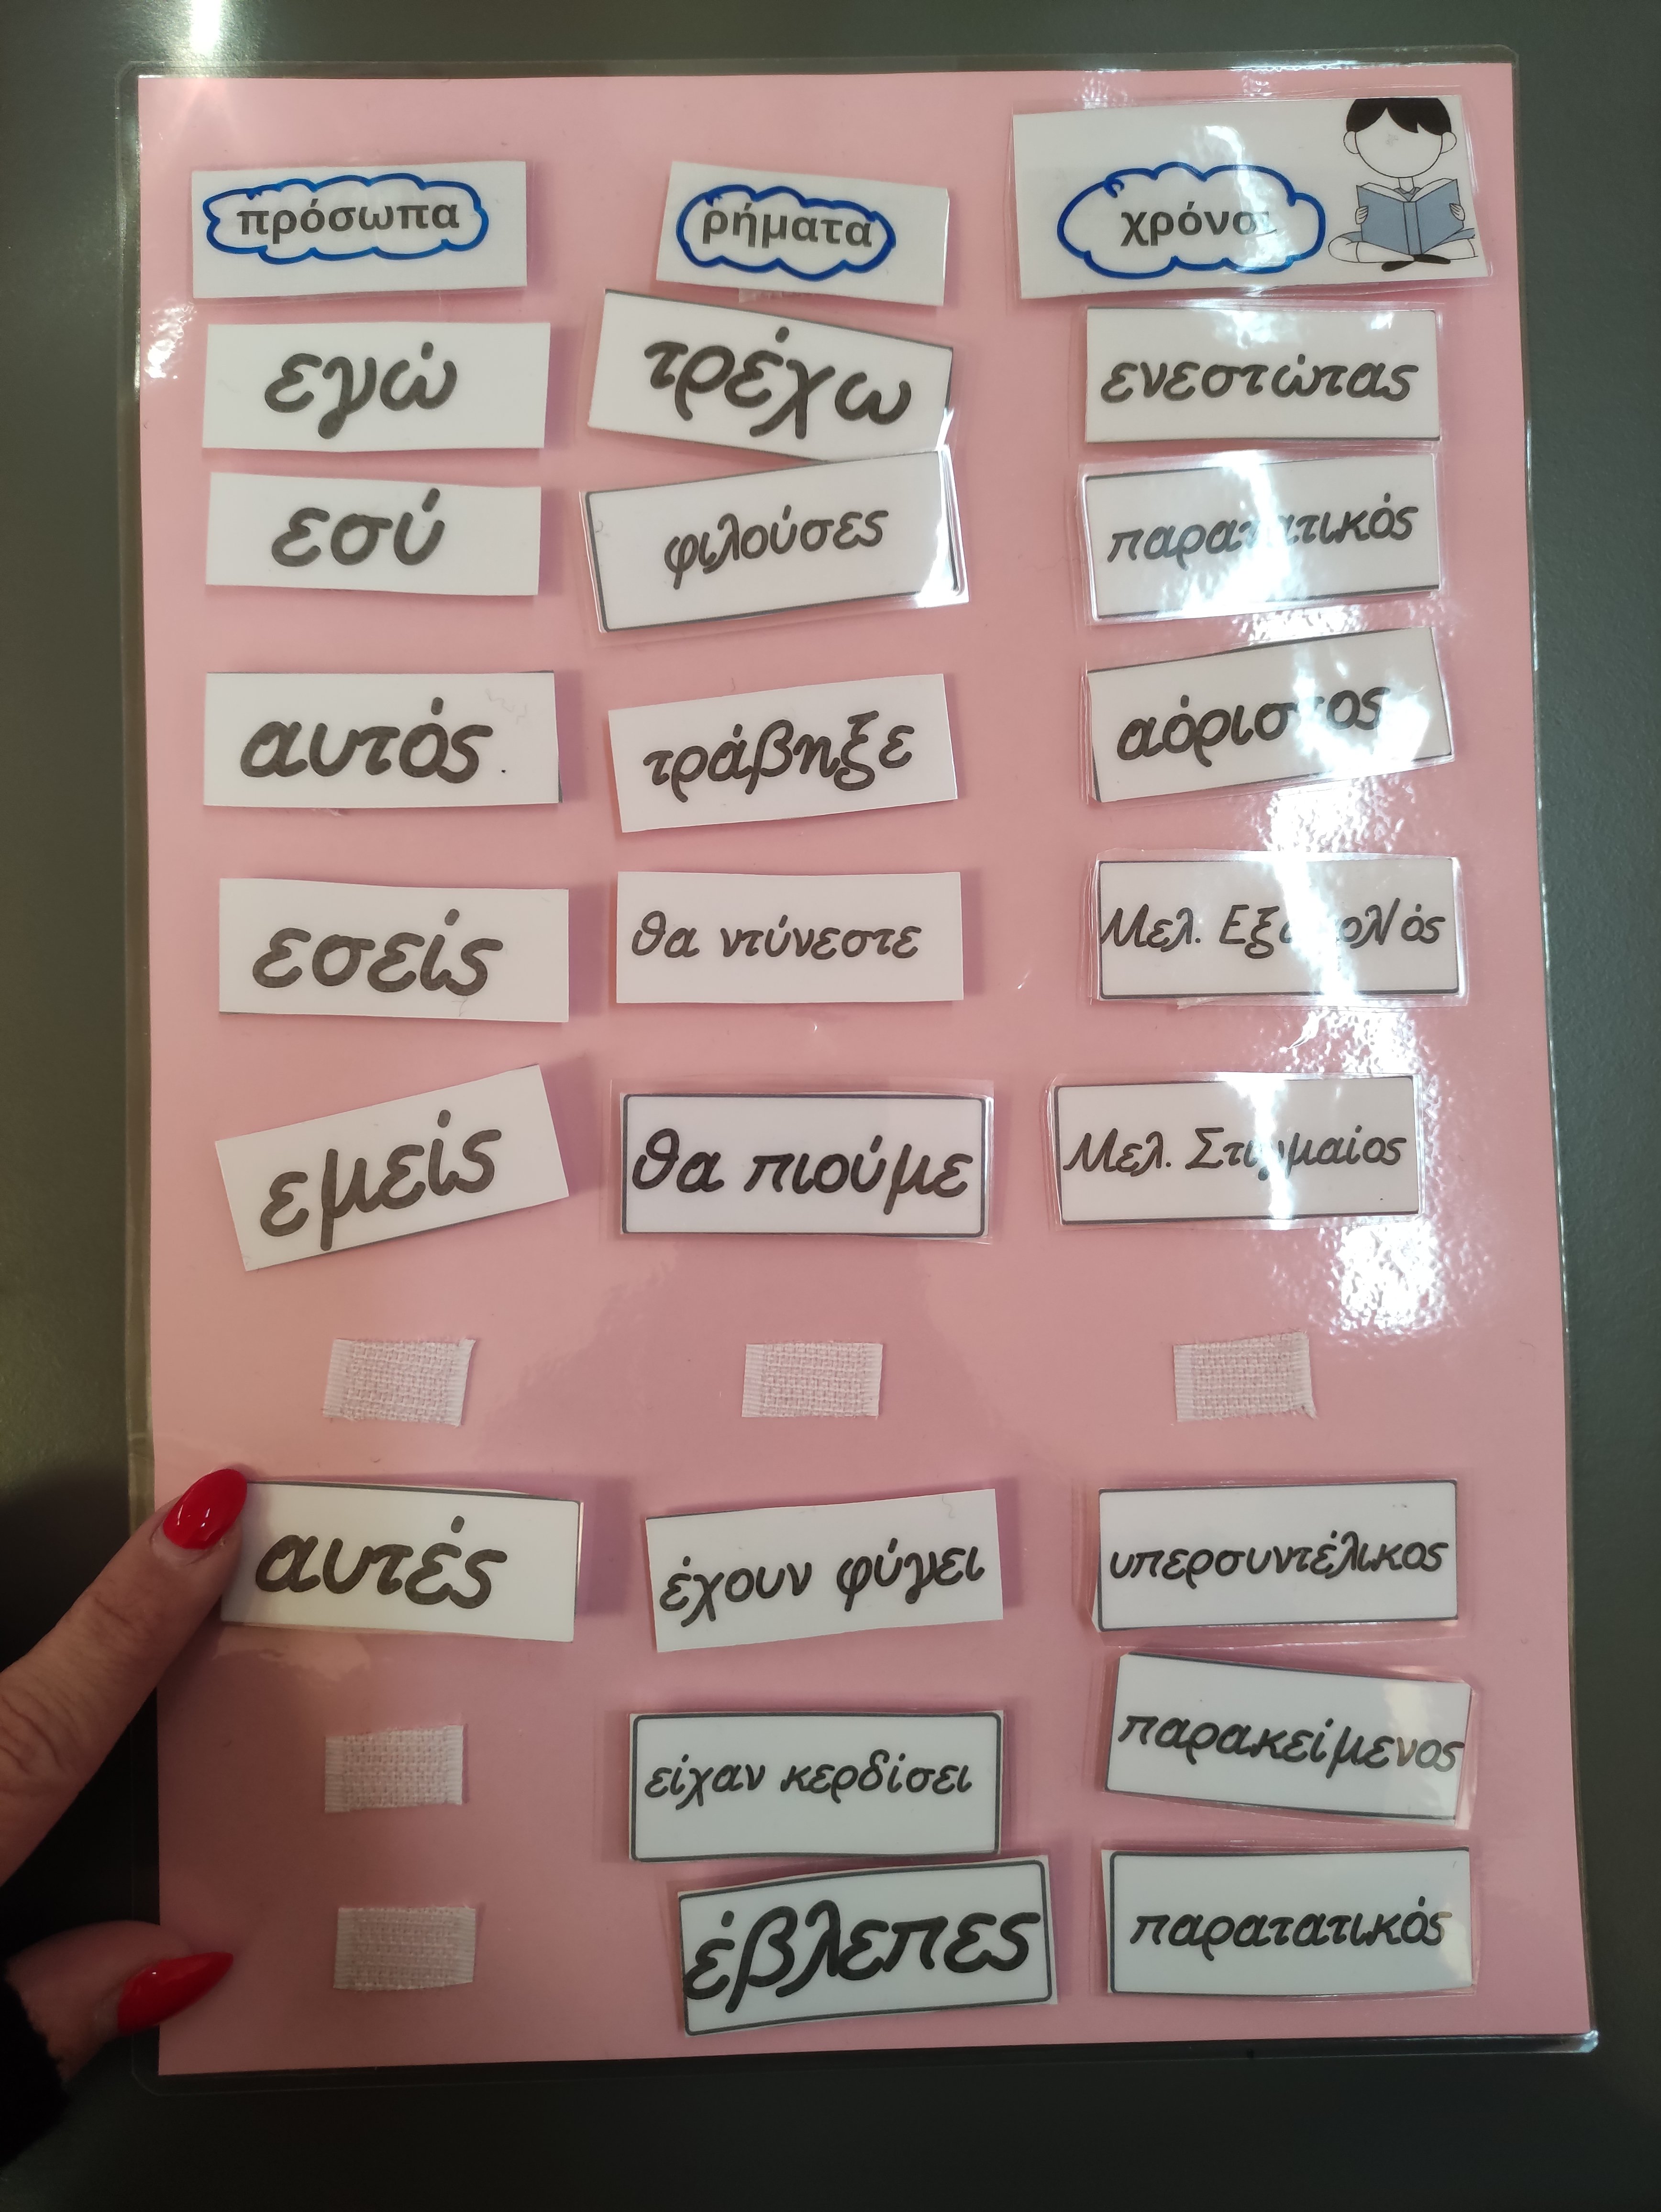 πρόσωπα ρήματα χρόνοι
εγώ τρέχω ενεστώτας
εσύ φιλούσες παρατατικός
αυτός τράβηξε αόριστος
εσείς θα ντύνεστε Μελ. Εξακολ/ός
εμείς θα πιούμε Μελ. Στιγμαίος
αυτές έχουν φύγει υπερσυντέλικος
είχαν κερδίσει παρακείμενος
έβλεπες παρατατικός